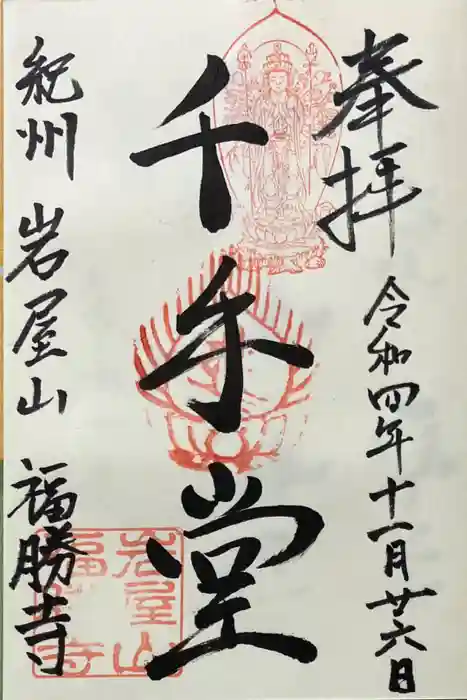 奉拝
令和四年十一月廿六日
千手堂
紀州 岩屋山 福勝寺
岩屋山
福勝寺